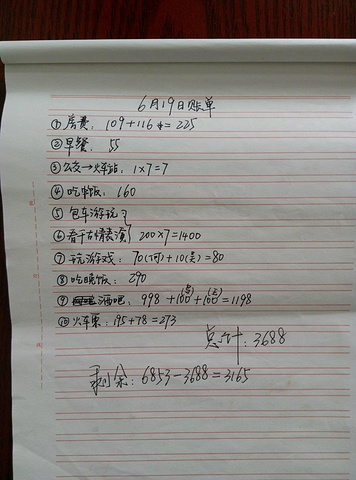 6月19日账单
① 房费: 109+116=225
② 早餐: 55
③ 公交→火车站: 1×7=7
④ 吃午饭: 160
⑤ 包车游玩
⑥ 看千古情表演 200×7=1400
⑦ 玩游戏: 70()+10()=80
⑧ 吃晚饭: 290
⑨ 酒吧: 998+100+100=1198
⑩ 火车票: 195+78=273
总计: 3688
剩余: 6853-3688=3165